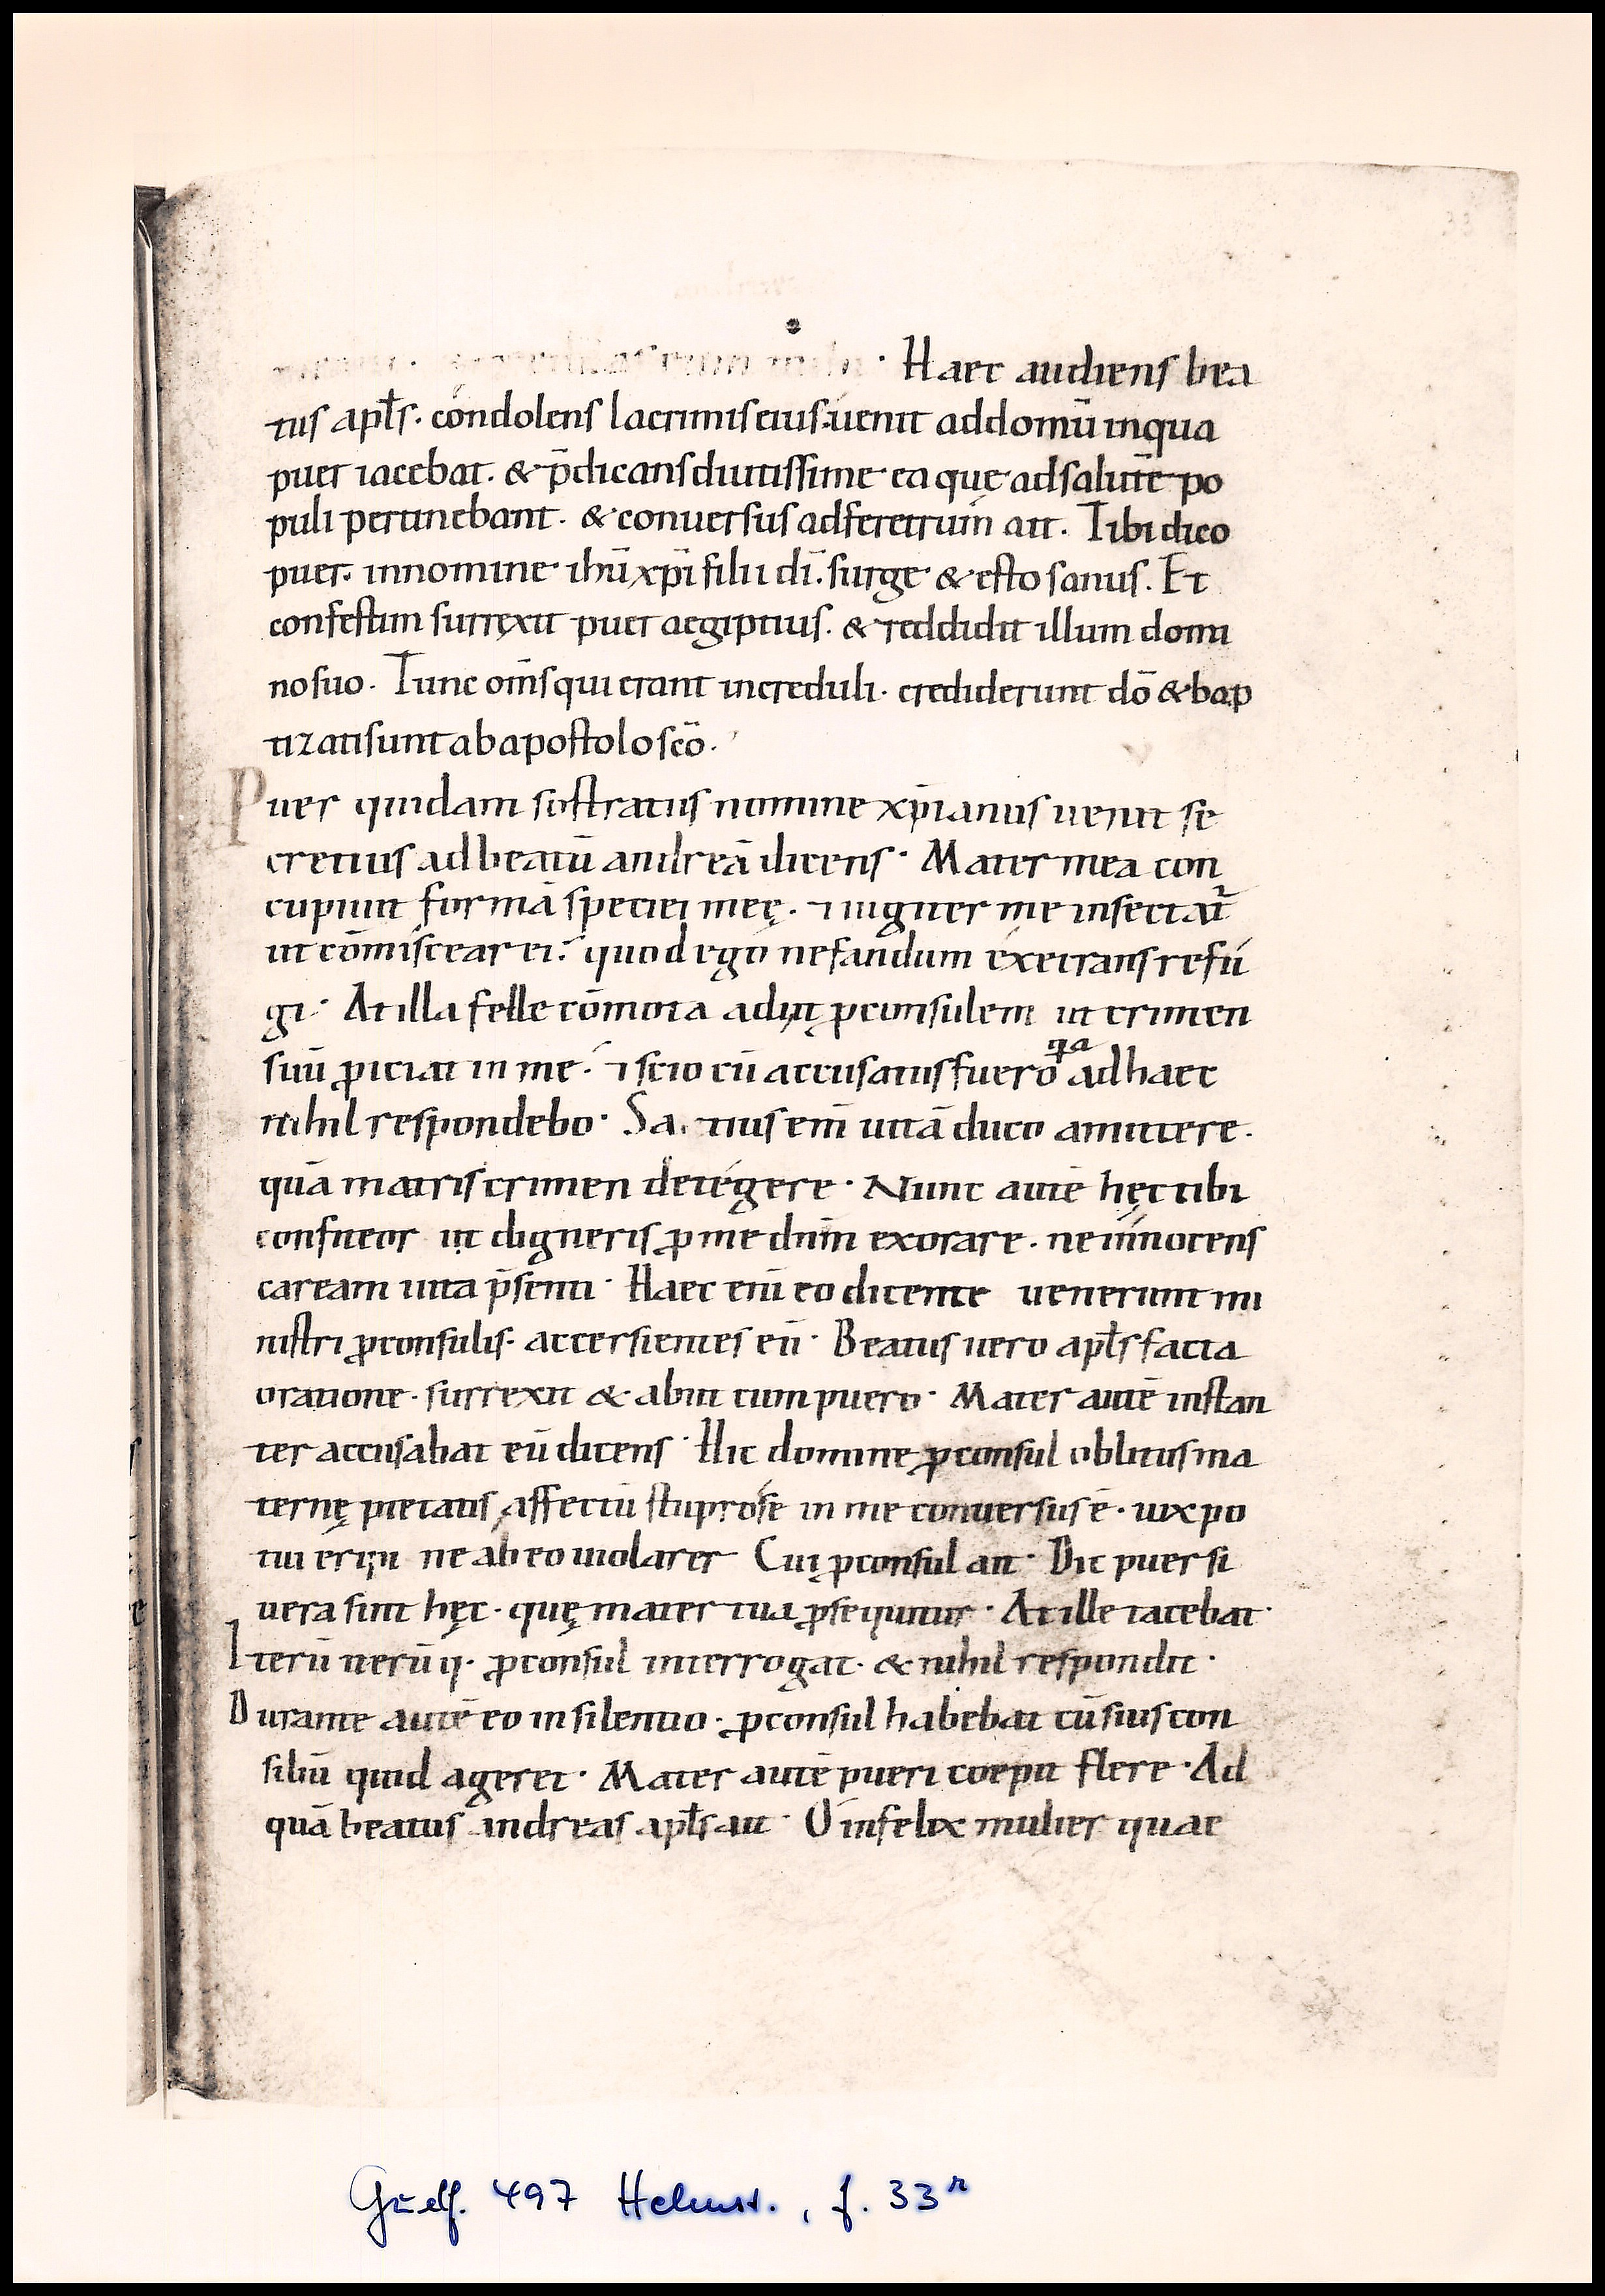 · Haec audiens bea
tus apłs· condolens lacrimis eius· uenit ad domū in qua
puer iacebat· & p̄dicans diutissime ea que ad salutē po
puli pertinebant· & conuersus ad feretrum ait. Tibi dico
puer· in nomine ihū xpī filii dī. surge & esto sanus. Et
confestim surrexit puer aegiptius. & reddidit illum domi
no suo. Tunc om̄s qui erant increduli· crediderunt dō & bap
tizati sunt ab apostolo scō.
Puer quidam sostratus nomine xpīanus uenit se
cretius ad beatū andreā dicens· Mater mea con
cupiuit formā speciei meę· ⁊ iugiter me insectat᷑
ut cōmiscear ei· quod ego nefandum execrans refu
gi· At illa felle cōmota adiit p̱consulem ut crimen
suū p̱iciat in me· ⁊ scio cū accusatus fuero qa ad haec
nihil respondebo· Satius enī uitā duco amittere·
quā matris crimen detegere· Nunc autē hęc tibi
confiteor ut digneris p̱ me dnm̄ exorare· ne innocens
caream uita p̄senti· Haec enī eo dicente uenerunt mi
nistri p̱consulis· accersientes eū· Beatus uero apłs facta
oratione· surrexit & abiit cum puero· Mater autē instan
ter accusabat eū dicens· Hic domine p̱consul oblitus ma
ternę pietatis affectū stupro se in me conuersus ē· uix po
tui eripi ne ab eo uiolarer Cui p̱consul ait· Dic puer si
uera sint hęc· quę mater tua p̱sequitur· At ille tacebat·
Iterū iterūq· p̱consul interrogat· & nihil respondit·
Durante autē eo in silentio· p̱consul habebat cū suis con
siliū quid ageret· Mater autē pueri coepit flere· Ad
quā beatus andreas apłs ait· O infelix mulier quae
Guelf. 497 Helmst., f. 33r